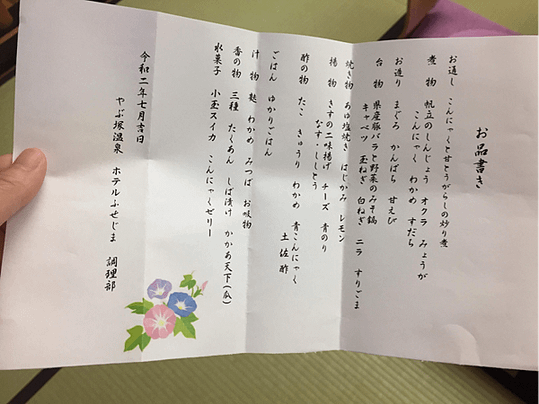 お品書き
お通し こんにゃくと甘とうがらしの炒り煮
煮物 帆立のしんじょう オクラ みょうが
こんにゃく わかめ すだち
お造り まぐろ かんぱち 甘えび
台物 県産豚バラと野菜のみそ鍋
キャベツ 玉ねぎ 白ねぎ ニラ すりごま
焼き物 あゆ塩焼き はじかみ レモン
揚物 きすの二味揚げ チーズ 青のり
なす・ししとう
酢の物 たこ きゅうり わかめ 青こんにゃく
土佐酢
ごはん ゆかりごはん
汁物 麩 わかめ みつば お吸物
香の物 三種 たくあん しば漬け かかあ天下(瓜)
水菓子 小玉スイカ こんにゃくゼリー
令和二年七月吉日
やぶ塚温泉 ホテルふせじま 調理部